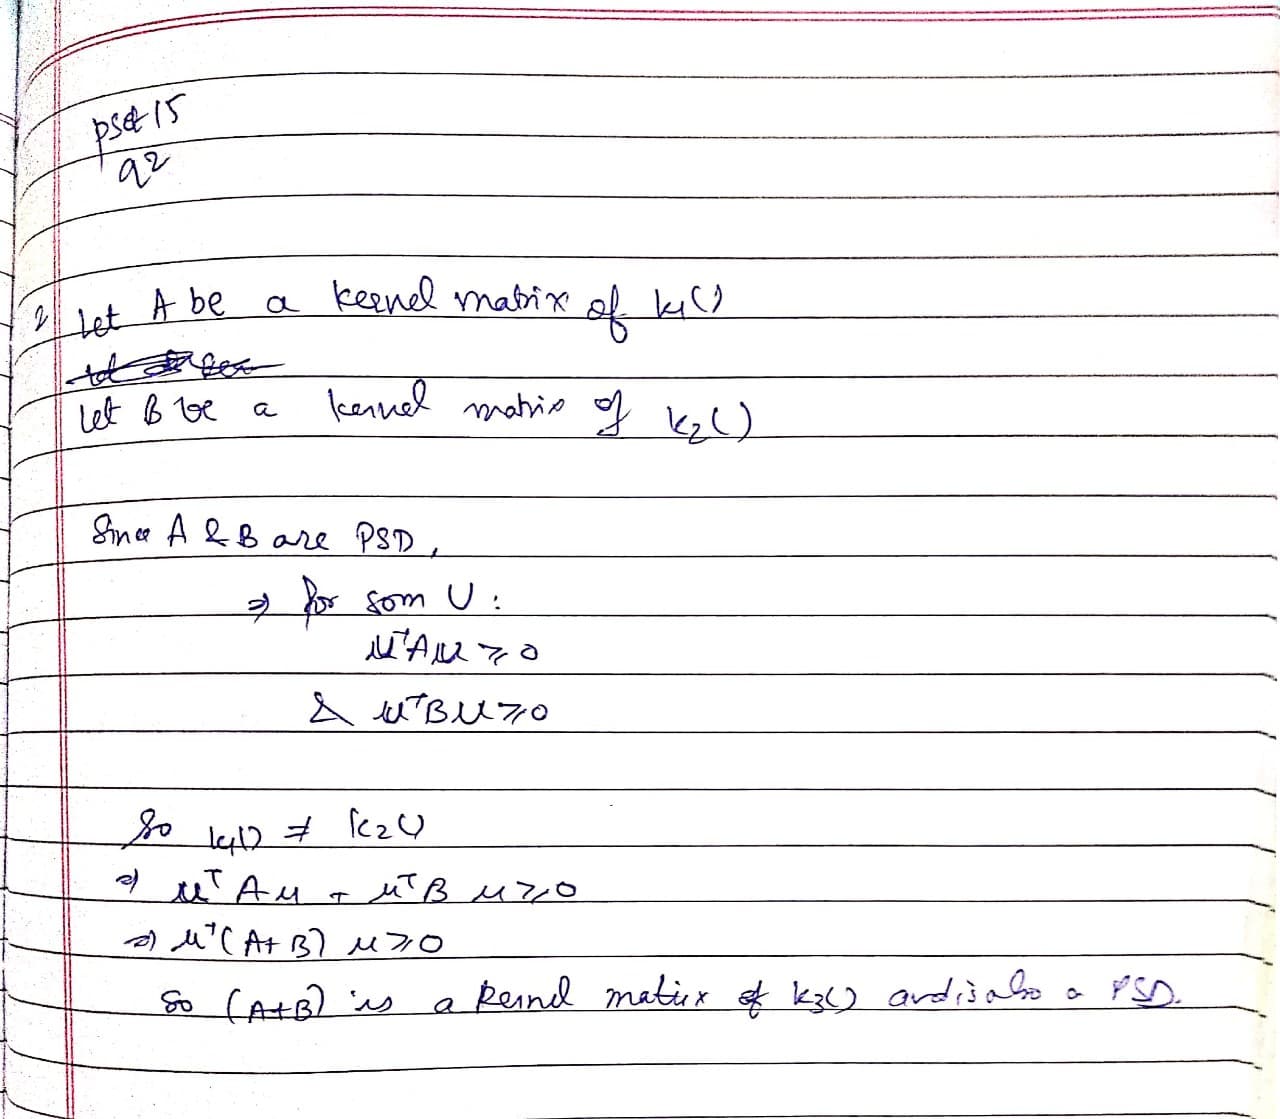 pset 15
q2
2 Let A be a kernel matrix of k1()
Let B be a kernel matrix of k2()
Since A & B are PSD,
⇒ for som U:
u^T A u ≥ 0
& u^T B u ≥ 0
So k1() + k2()
⇒ u^T A u + u^T B u ≥ 0
⇒ u^T (A+B) u ≥ 0
So (A+B) is a kernel matrix of k3() and is also a PSD.